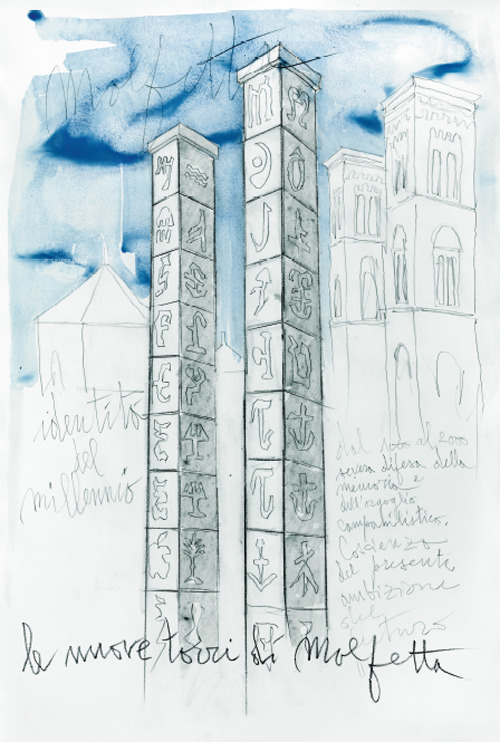 Molfetta
identità
del
millennio
dal 1000 al 2000
severa difesa della
memoria e
dell'orgoglio
campanilistico.
Coscienza
del presente
ambizione
del
le nuove torri di Molfetta